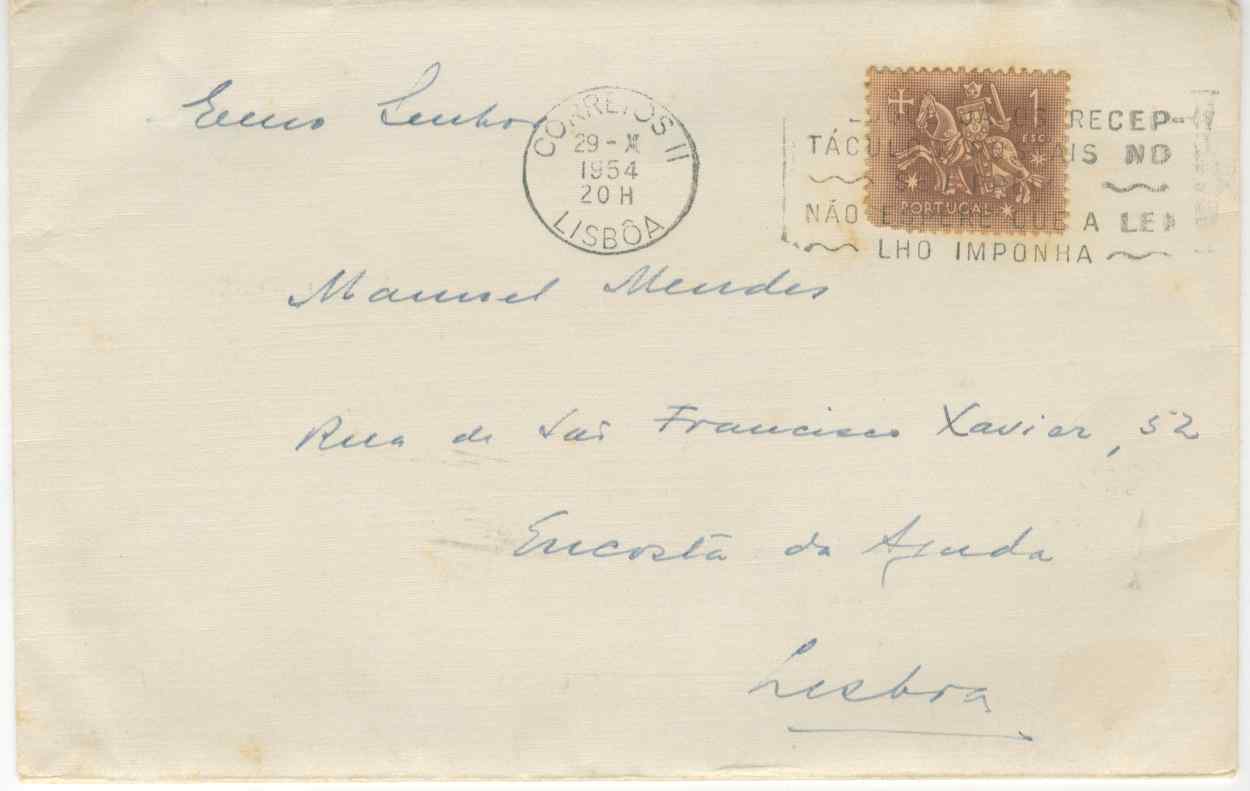 Exmo Senhor
CORREIOS II
29-X
1954
20 H
LISBÔA
1
ESC.
PORTUGAL
RECEP-
TÁCUL AIS NO
NÃO E A LEI
LHO IMPONHA
Manuel Mendes
Rua de São Francisco Xavier, 52
Encosta da Ajuda
Lisboa